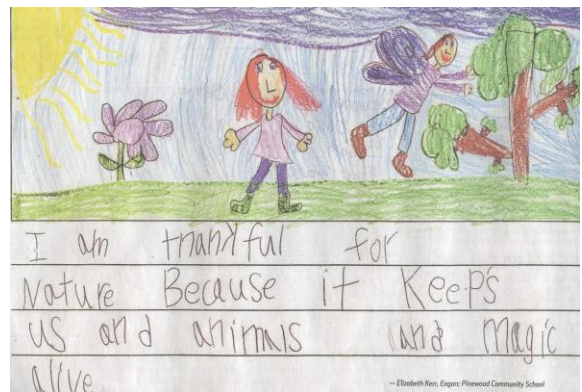 I am thankful for
Nature Because it Keeps
us and animals and magic
alive
— Elizabeth Kerr, Eagan; Pinewood Community School